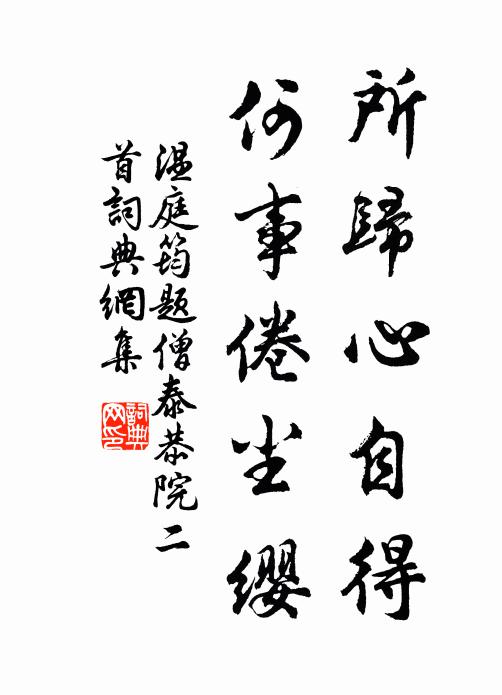 所歸心自得
何事倦尘缨
温庭筠题僧泰恭院二
首詞典網集
詞典
网印